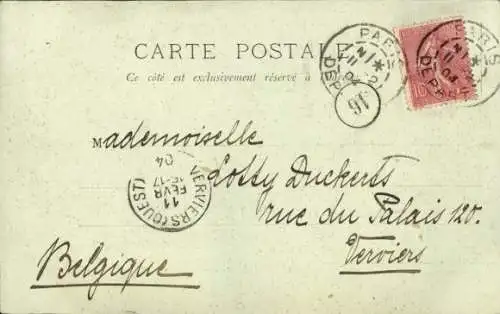 CARTE POSTALE
Ce côté est exclusivement réservé à
PARIS
DEPART
PARIS
11
04
DEPART
16
10
Mademoiselle
Lotty Duckerts
rue du Palais 120.
Verviers
Belgique
VERVIERS (OUEST)
11
FEVR
15-17
04